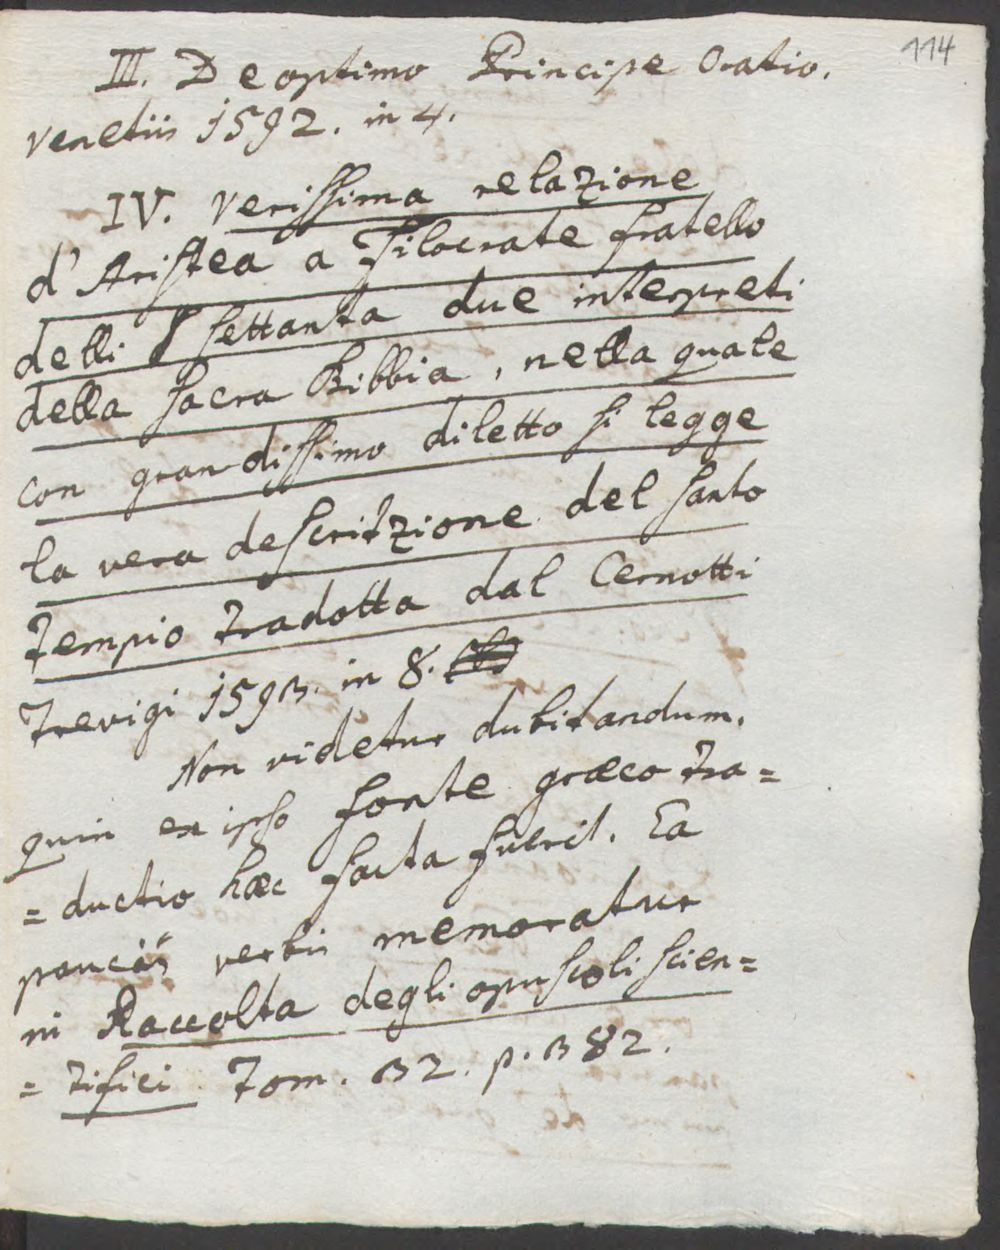 114
III. De optimo Principe Oratio.
Venetiis 1592. in 4.
IV. Verissima relazione
d'Aristea a Filocrate fratello
delli settanta due interpreti
della sacra Bibbia, nella quale
con grandissimo diletto si legge
la vera descritzione del santo
tempio tradotta dal Cernotti
Trevigi 1593. in 8.
Non videtur dubitandum.
quin ex ipso fonte græco tra=
=ductio hæc facta fuerit. Ea
paucis verbis memoratur
in Raccolta degli opuscoli scien=
=tifici Tom. 32. p. 382.